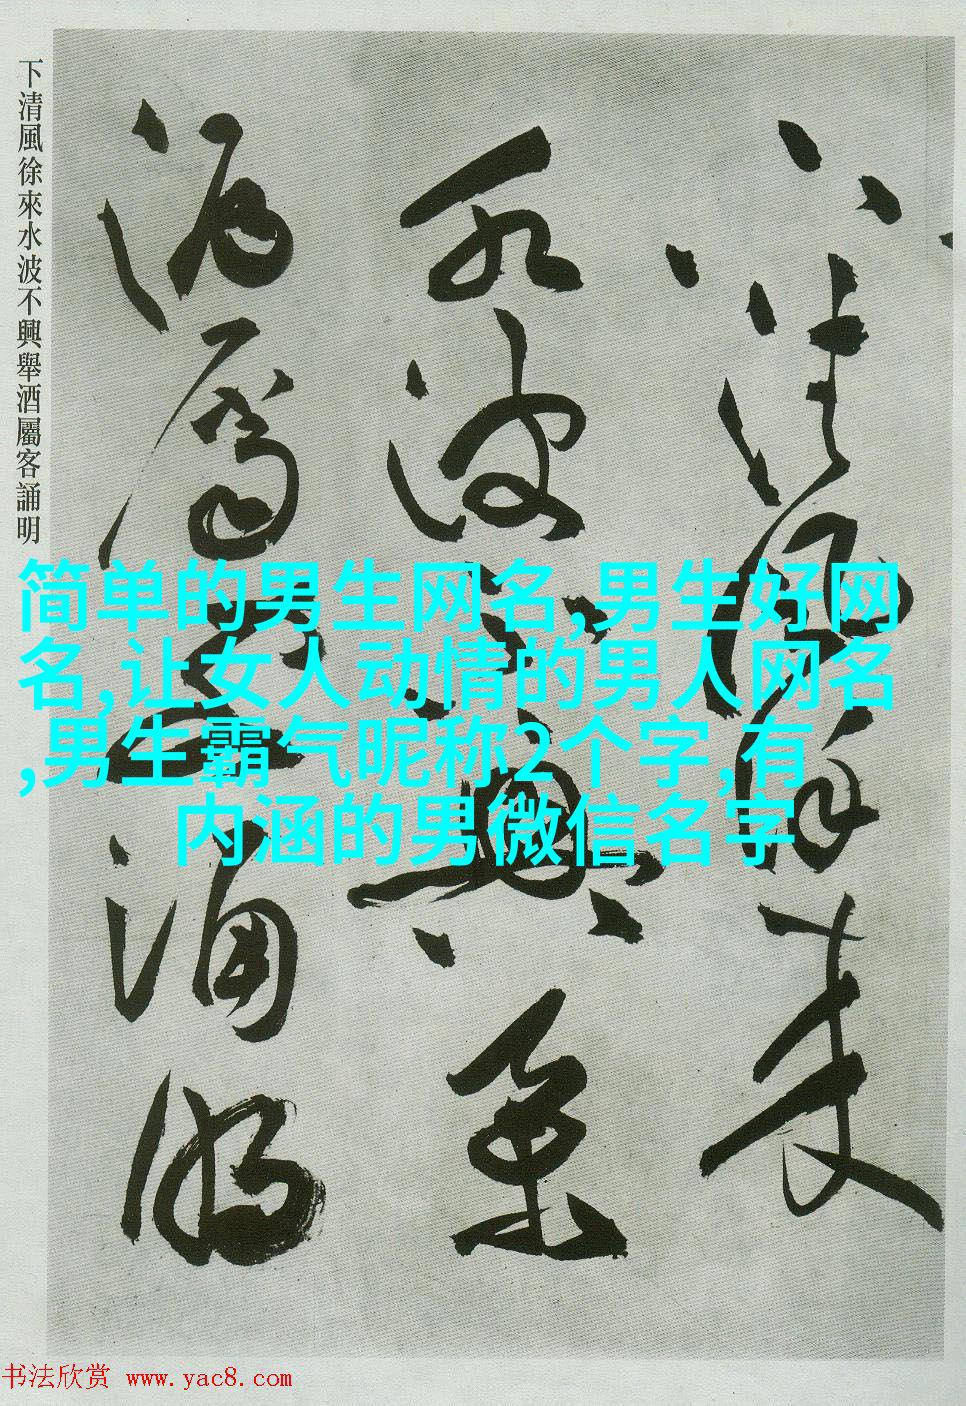 下清風徐來水波不興舉酒屬客誦明
下清風徐來
水波不興舉
酒屬客誦明
简单的男生网名,男生好网
名,让女人动情的男人网名
,男生霸气昵称2个字,有
内涵的男微信名字
书法欣赏 www.yac8.com